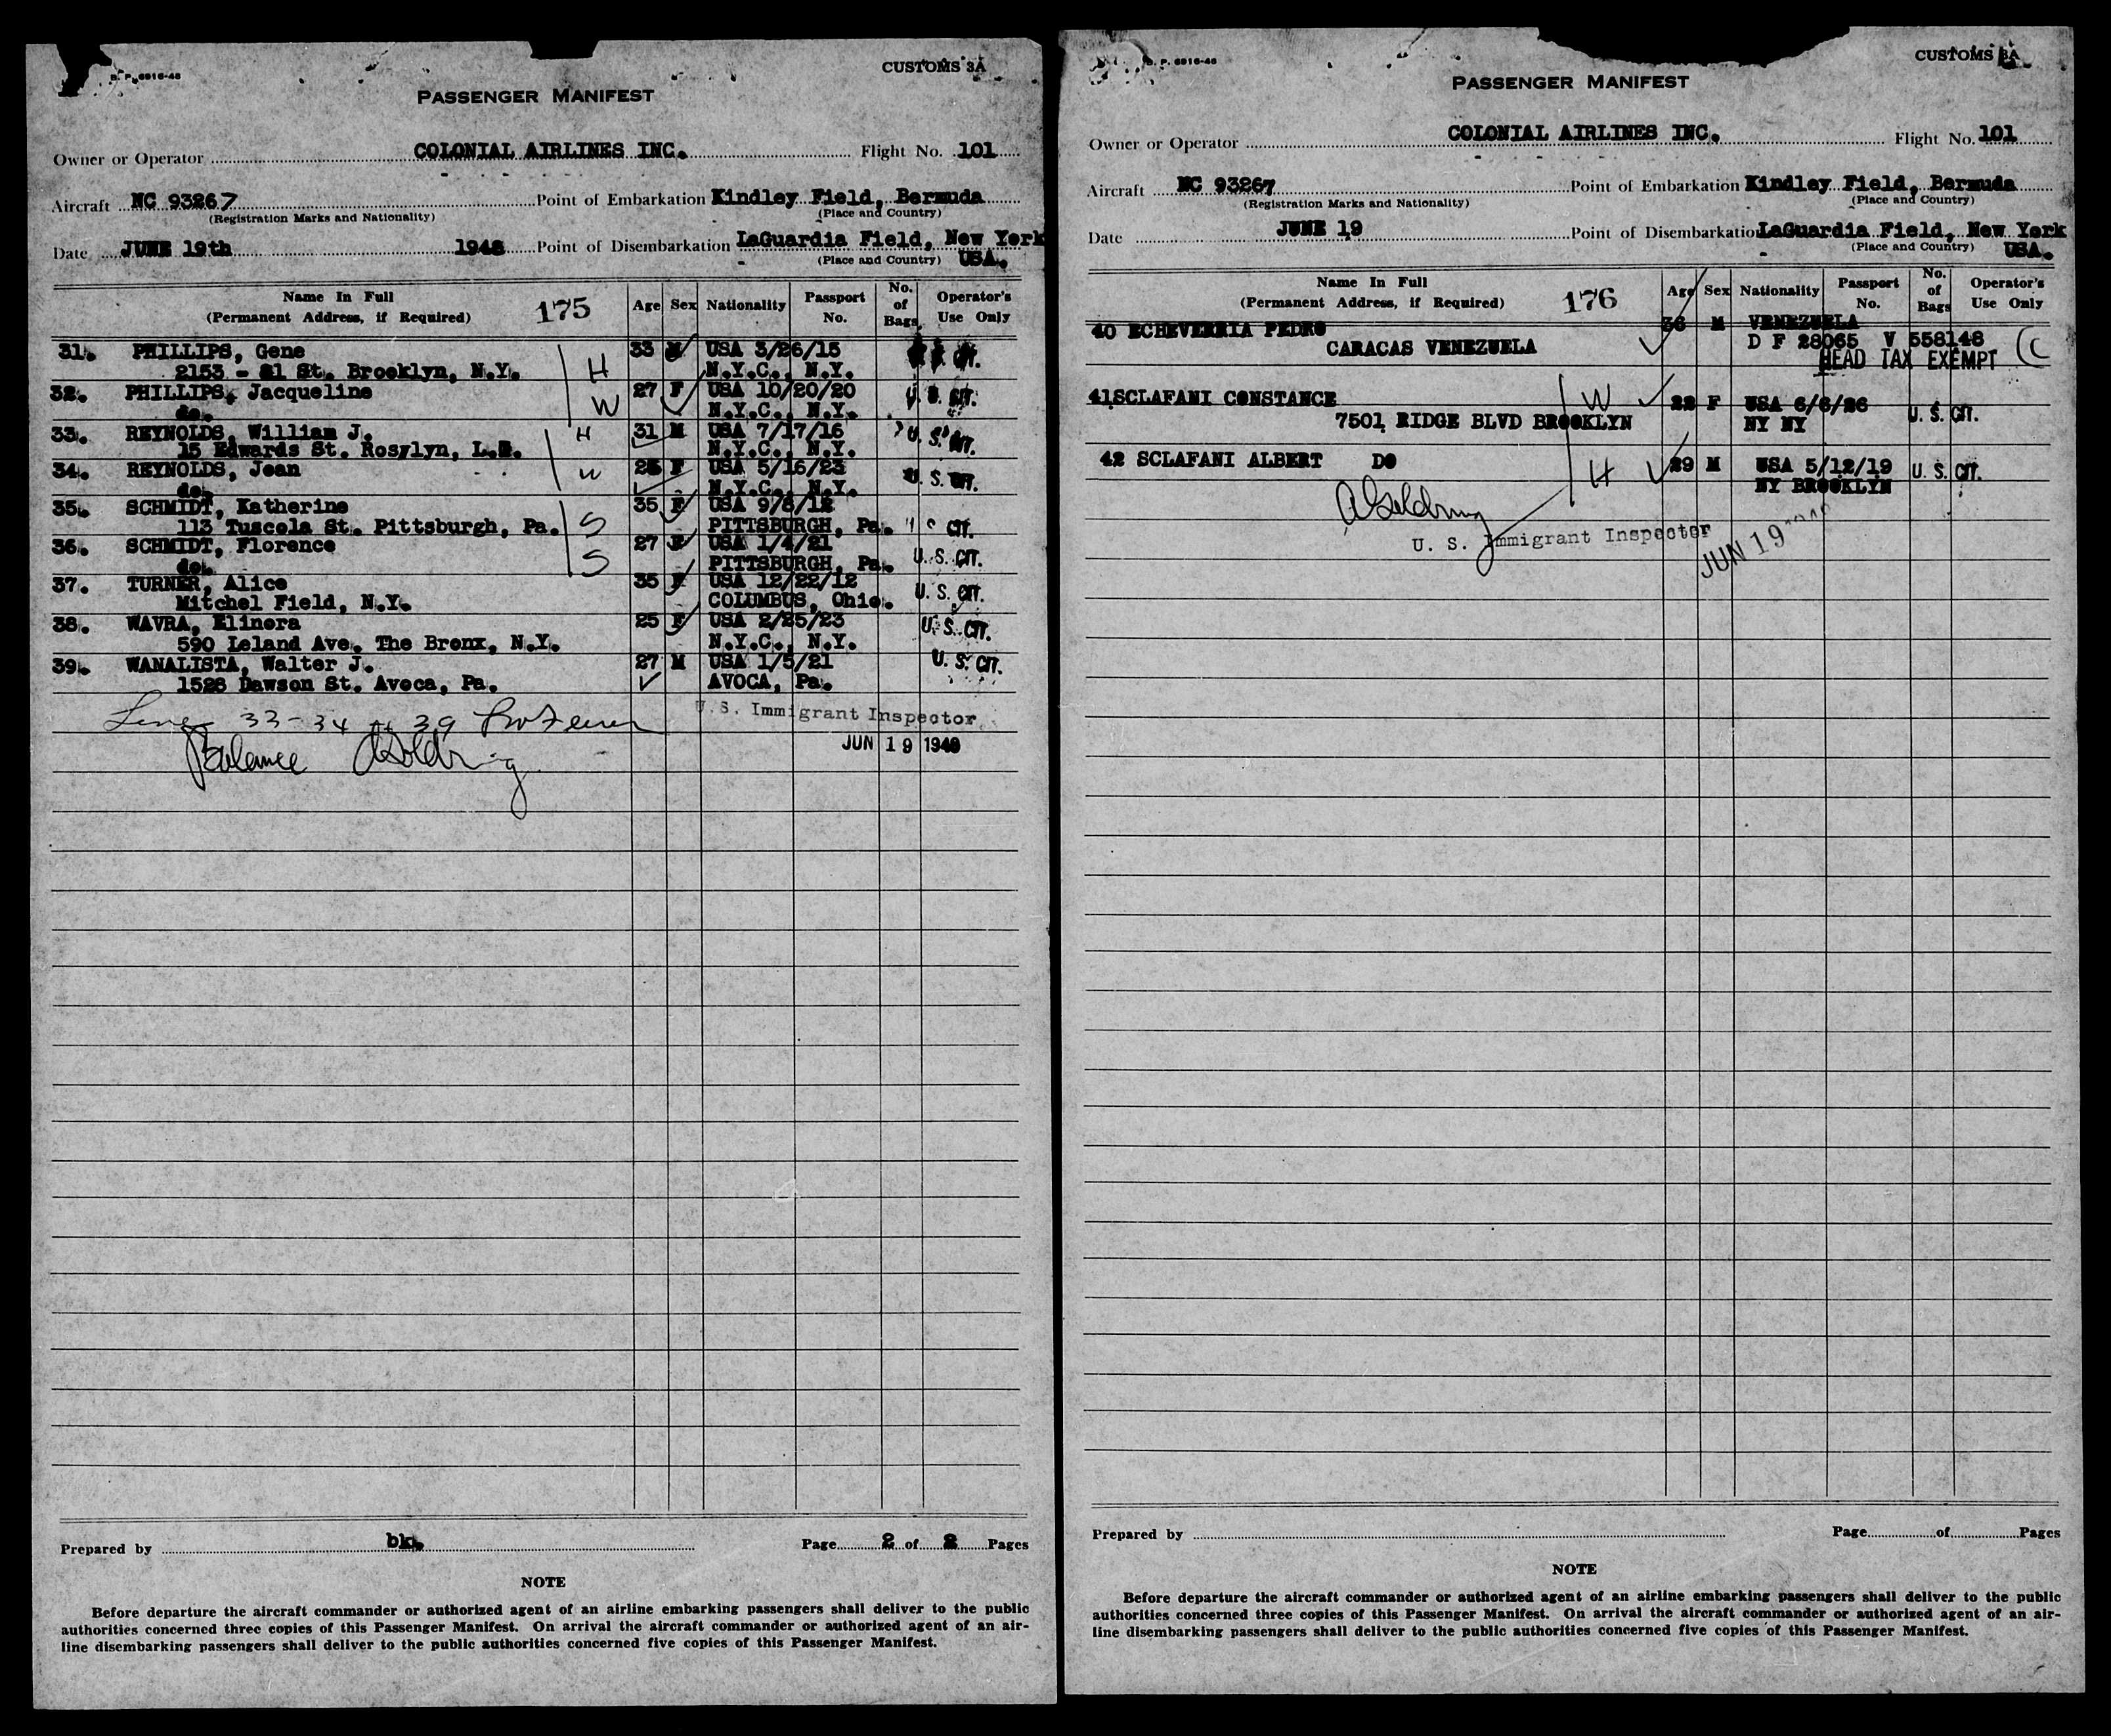 B. P. 6916-48
CUSTOMS 3A
PASSENGER MANIFEST
Owner or Operator COLONIAL AIRLINES INC. Flight No. 101
Aircraft NC 93267 Point of Embarkation Kindley Field, Bermuda
(Registration Marks and Nationality) (Place and Country)
Date JUNE 19th 1948 Point of Disembarkation LaGuardia Field, New York
(Place and Country) USA.
Name In Full (Permanent Address, if Required) 175 Age Sex Nationality Passport No. No. of Bags Operator's Use Only
31. PHILLIPS, Gene 33 M USA 3/26/15
2153 - 81 St. Brooklyn, N.Y. H N.Y.C., N.Y.
32. PHILLIPS, Jacqueline 27 F USA 10/20/20 U. S. CIT.
do. W N.Y.C., N.Y.
33. REYNOLDS, William J. H 31 M USA 7/17/16 U. S. CIT.
15 Edwards St. Roslyn, L.I. N.Y.C., N.Y.
34. REYNOLDS, Jean 25 F USA 5/16/23 U. S. CIT.
do. W N.Y.C., N.Y.
35. SCHMIDT, Katherine 35 F USA 9/6/12
113 Tuscola St. Pittsburgh, Pa. S PITTSBURGH, Pa. U S CIT.
36. SCHMIDT, Florence 27 F USA 1/4/21
do. S PITTSBURGH, Pa. U. S. CIT.
37. TURNER, Alice 35 F USA 12/22/12
Mitchel Field, N.Y. COLUMBUS, Ohio. U. S. CIT.
38. WAVRA, Elinora 25 F USA 2/25/23 U. S. CIT.
590 Leland Ave. The Bronx, N.Y. N.Y.C., N.Y.
39. WANALISTA, Walter J. 27 M USA 1/5/21 U. S. CIT.
1528 Dawson St. Avoca, Pa. AVOCA, Pa.
Lines 33-34 39
U.S. Immigrant Inspector
Balance A Goldring
JUN 19 1948
Prepared by bk. Page 2 of 2 Pages
NOTE
Before departure the aircraft commander or authorized agent of an airline embarking passengers shall deliver to the public
authorities concerned three copies of this Passenger Manifest. On arrival the aircraft commander or authorized agent of an air-
line disembarking passengers shall deliver to the public authorities concerned five copies of this Passenger Manifest.
B. P. 6916-48
CUSTOMS 3A
PASSENGER MANIFEST
Owner or Operator COLONIAL AIRLINES INC. Flight No. 101
Aircraft NC 93267 Point of Embarkation Kindley Field, Bermuda
(Registration Marks and Nationality) (Place and Country)
Date JUNE 19 Point of Disembarkation LaGuardia Field, New York
(Place and Country) USA.
Name In Full (Permanent Address, if Required) 176 Age Sex Nationality Passport No. No. of Bags Operator's Use Only
40 ECHEVERRIA PEDRO 36 M VENEZUELA
CARACAS VENEZUELA D F 28065 V 558148
HEAD TAX EXEMPT
41 SCLAFANI CONSTANCE W 22 F USA 6/6/26 U. S. CIT.
7501 RIDGE BLVD BROOKLYN NY NY
42 SCLAFANI ALBERT DO H 29 M USA 5/12/19 U. S. CIT.
NY BROOKLYN
A Goldring
U. S. Immigrant Inspector
JUN 19 1948
Prepared by Page of Pages
NOTE
Before departure the aircraft commander or authorized agent of an airline embarking passengers shall deliver to the public
authorities concerned three copies of this Passenger Manifest. On arrival the aircraft commander or authorized agent of an air-
line disembarking passengers shall deliver to the public authorities concerned five copies of this Passenger Manifest.